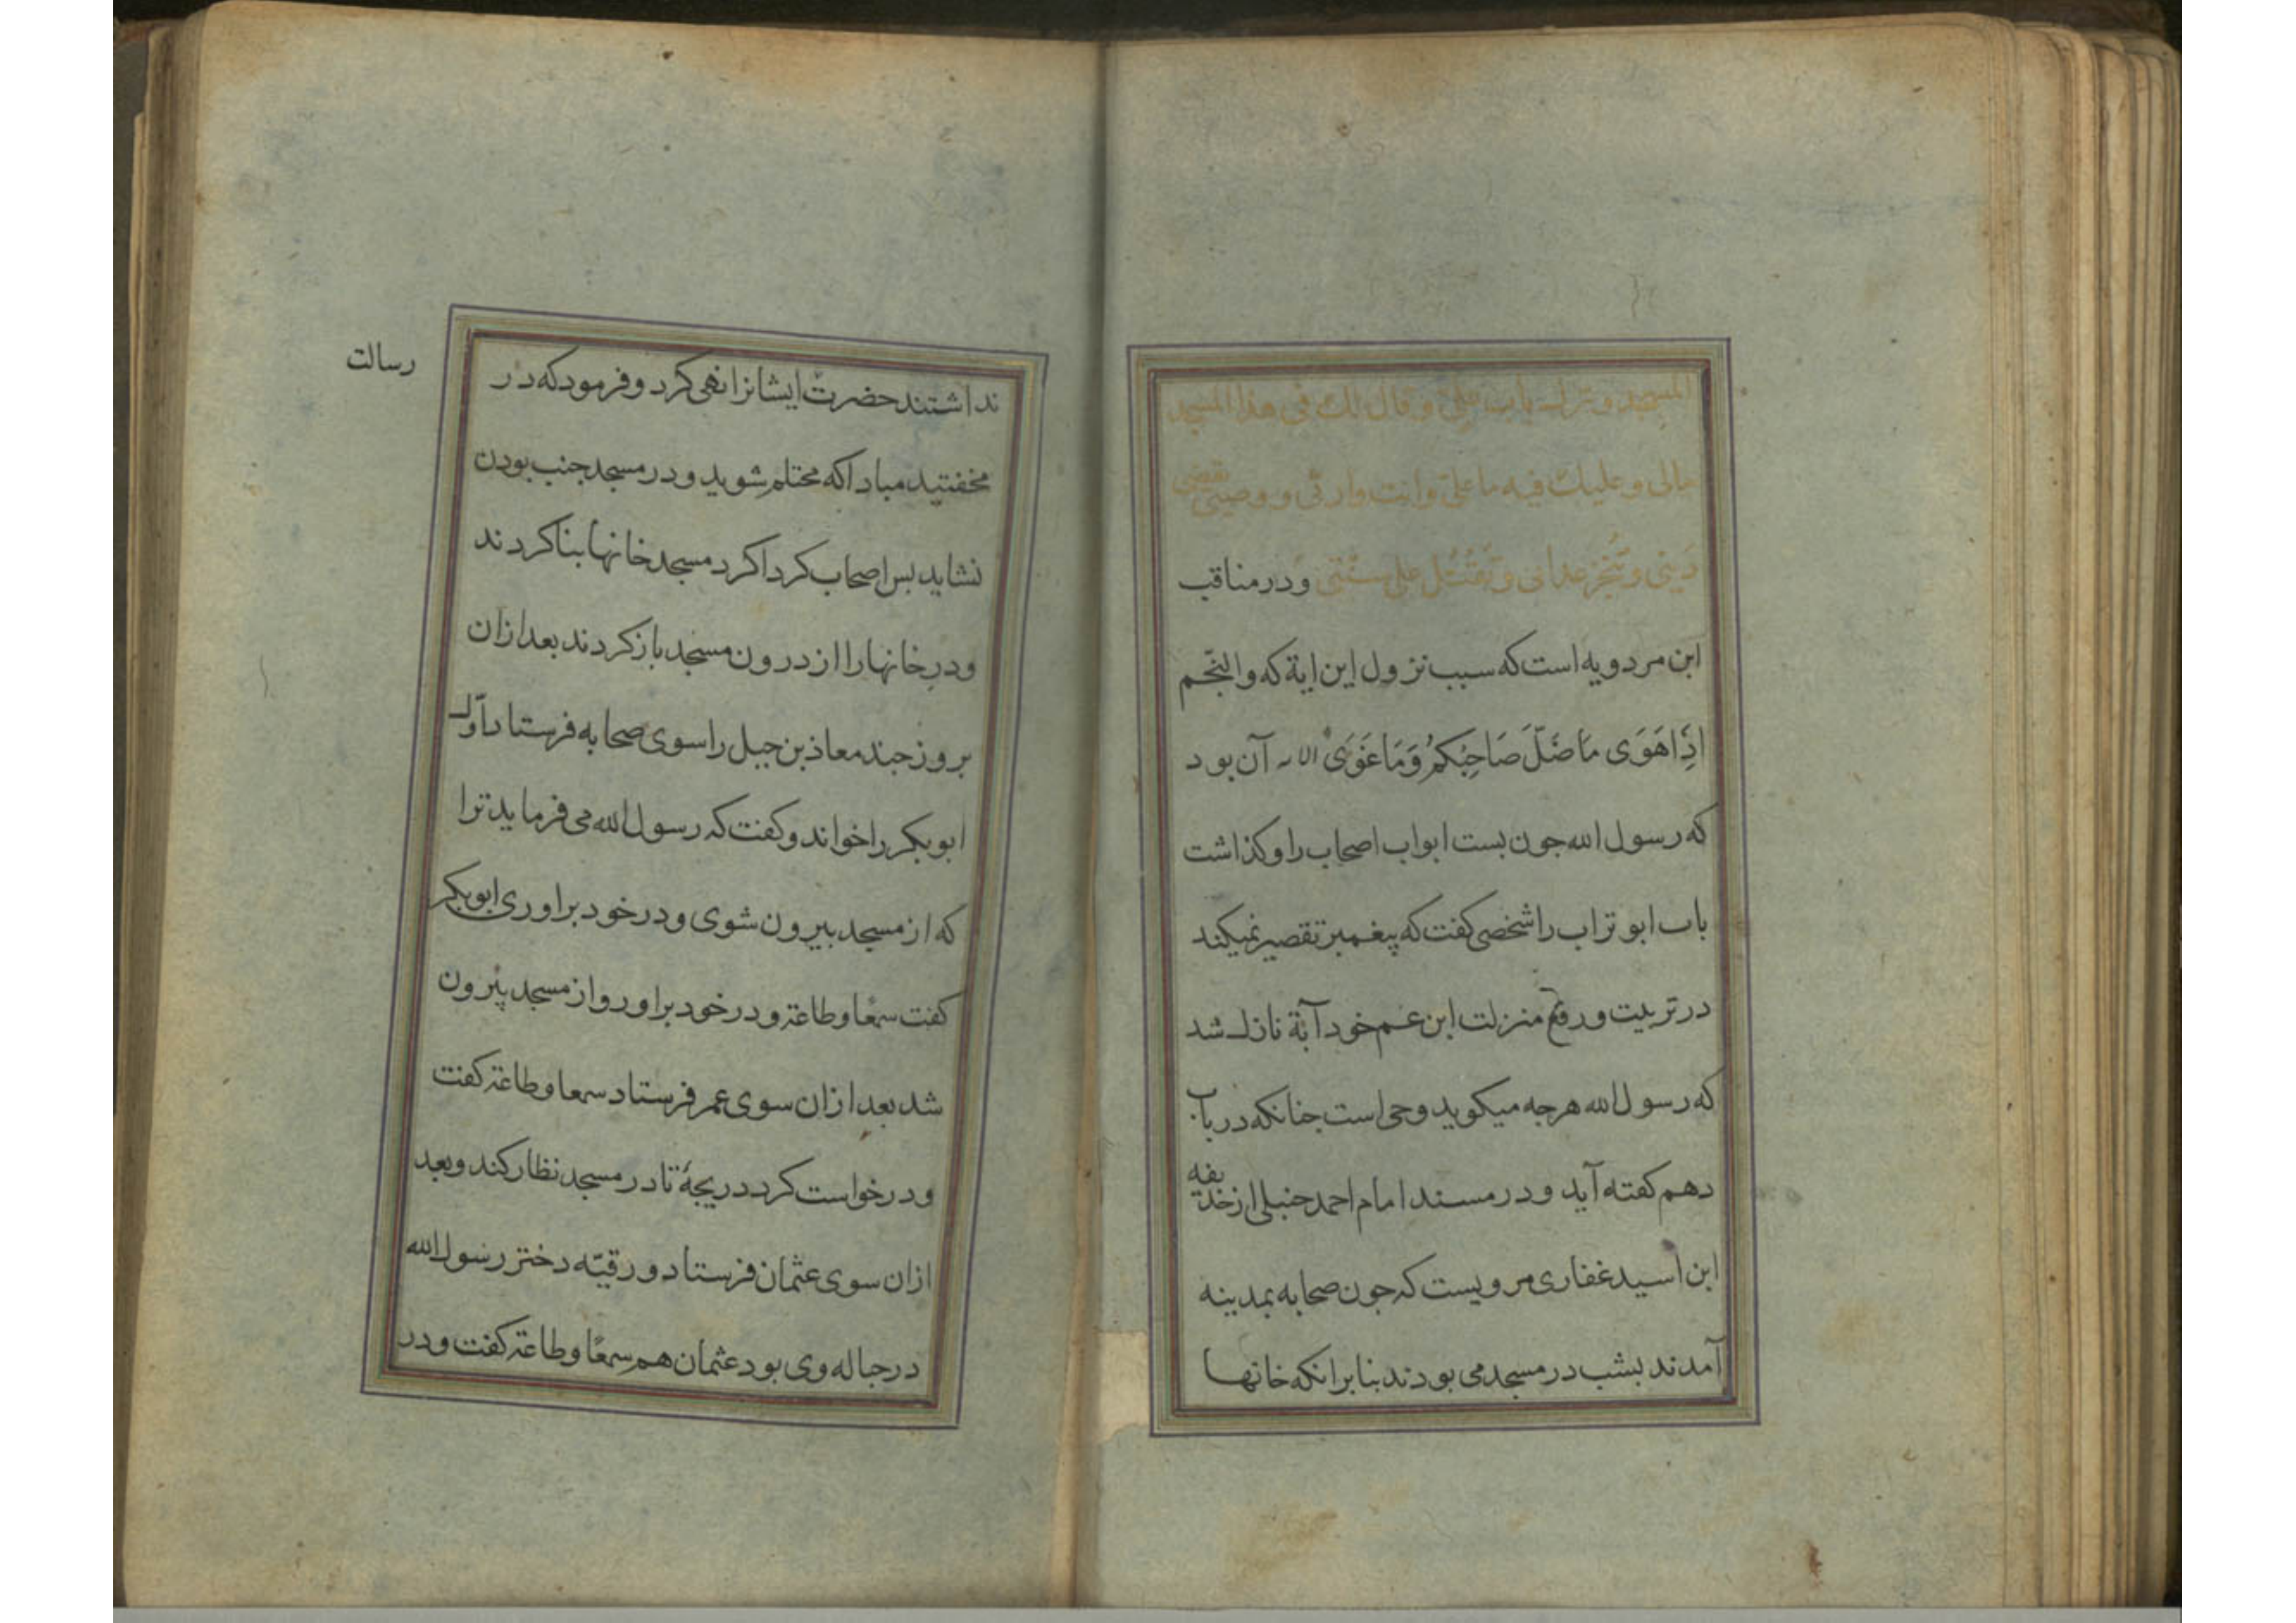 المسجد و ترك باب علي و قال لك في هذا المسجد
مالی و عليك فيه ما علیّ و انت وارثی و وصیّی تقضی
دَینی و تُنجِز عداتی و تَقتُل علی سنّتی و در مناقب
ابن مردویه است که سبب نزول این ایة که والنّجم
اِذَا هَوَی مَا ضَلَّ صَاحِبُکُمْ وَمَا غَوَیٰ الایه آن بود
که رسول الله جون بست ابواب اصحاب را و کذاشت
باب ابو تراب را شخصی کفت که پیغمبر تقصیر نمیکند
در تربیت و رفع منزلت ابن عم خود آیة نازل شد
که رسول الله هرجه میکوید وحی است جنانکه در باب
دهم کفته آید و در مسند امام احمد حنبلی از حذیفه
ابن اسید غفاری مرویست که جون صحابه بمدینه
آمدند بشب در مسجد می بودند بنابر انکه خانها
نداشتند حضرتْ ایشانرا نهی کرد و فرمود که در
مخفتید مبادا که محتلم شوید و در مسجد جنب بودن
نشاید بس اصحاب کردا کرد مسجد خانها بنا کردند
و درِ خانها را از درون مسجد باز کردند بعد از ان
بروز جند معاذ بن جبل را سوی صحابه فرستاد اوّل
ابوبکر را خواند و کفت که رسول الله می فرماید ترا
که از مسجد بیرون شوی و در خود براوری ابوبکر
کفت سمعًا و طاعة و در خود براورد و از مسجد بیرون
شد بعد از ان سوی عمر فرستاد سمعا و طاعة کفت
و درخواست کرد دریجهٔ تا در مسجد نظار کند و بعد
ازان سوی عثمان فرستاد و رقیّه دختر رسول الله
در حباله وی بود عثمان هم سمعًا و طاعة کفت و در
رسالت